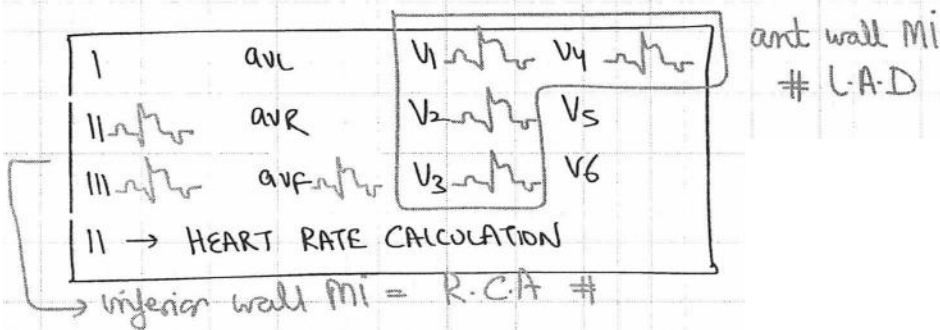 I aVL V1 V4
II aVR V2 V5
III aVF V3 V6
II → HEART RATE CALCULATION
ant wall Mi
# L.A.D
→ inferior wall Mi = R.C.A #